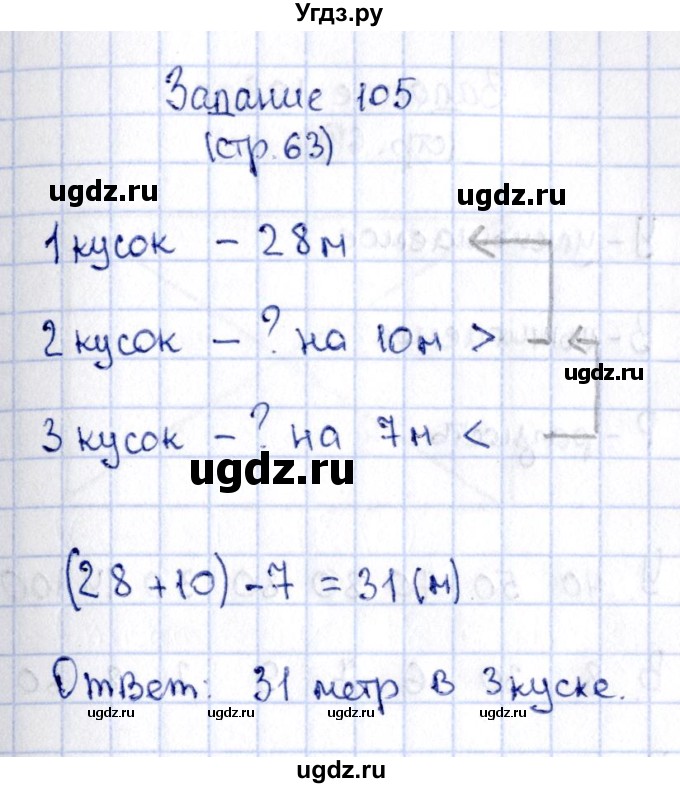 Угдз.ру
Задание 105
(стр. 63)
ugdz.ru ugdz.ru
1 кусок – 28 м
2 кусок – ? на 10 м > –
ugdz.ru
3 кусок – ? на 7 м <
ugdz.ru
(28 + 10) – 7 = 31 (м)
Ответ: 31 метр в 3 куске.
ugdz.ru ugdz.ru ugdz.ru ugdz.ru
ugdz.ru